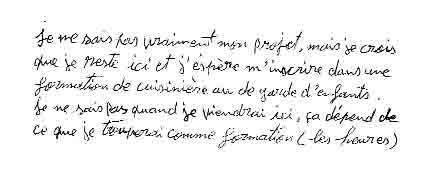 Je ne sais pas vraiment mon projet, mais je crois
que je reste ici et j'éspère m'inscrire dans une
formation de cuisinière ou de garde d'enfants.
Je ne sais pas quand je viendrai ici, ça dépend de
ce que je trouverai comme formation (-les-heures)